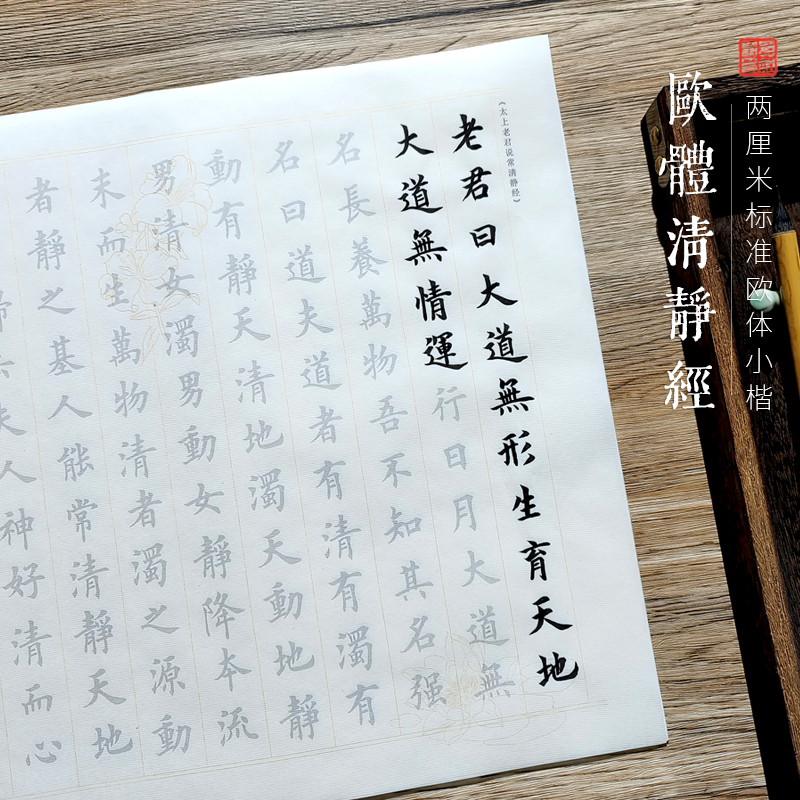 两厘米标准欧体小楷
歐體清靜經
《太上老君说常清静经》
老君曰大道無形生育天地
大道無情運行日月大道無
名長養萬物吾不知其名强
名曰道夫道者有清有濁有
動有靜天清地濁天動地靜
男清女濁男動女靜降本流
末而生萬物清者濁之源動
者靜之基人能常清靜天地
夫人神好清而心